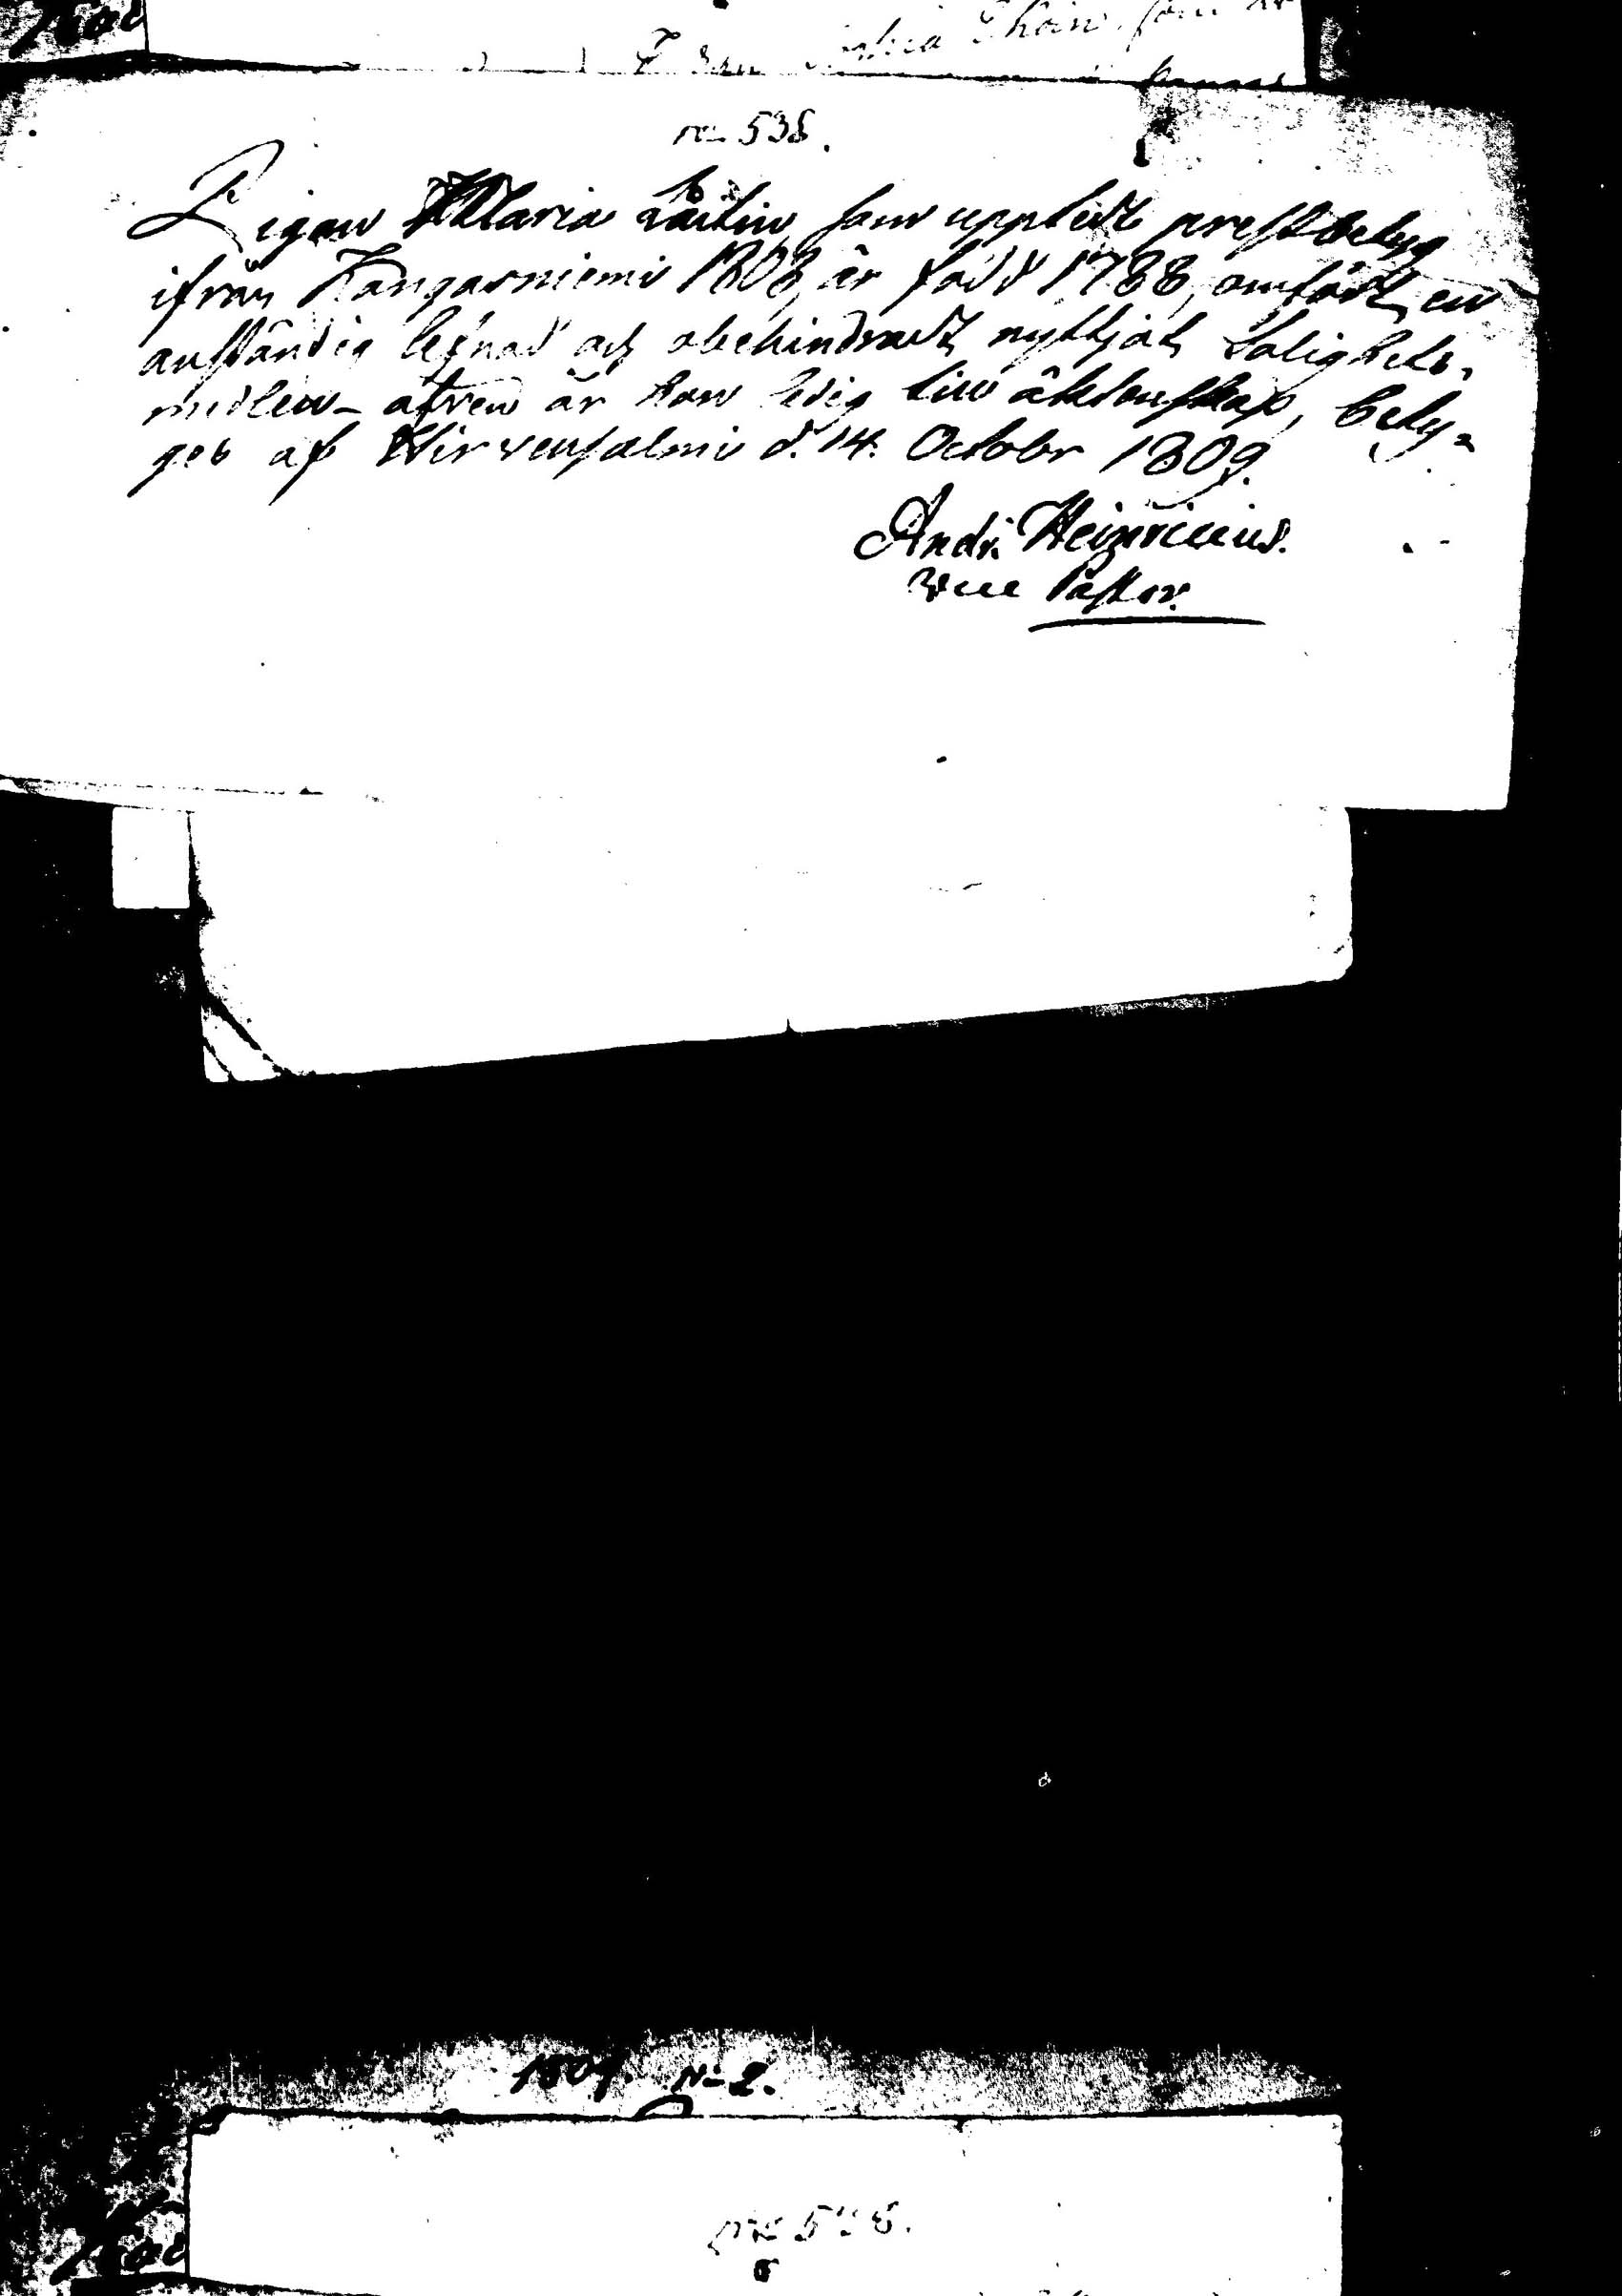 no 538.
Pigan Maria Laitin som uppteett prestbetyg
ifrån Kangasniemi 1808, är född 1788, omfört en
anständig lefnad och obehindradt nyttjat Salighets-
medlen - äfven är hon ledig till äktenskap, bety=
ges af Hirvensalmi d. 14. Octobr 1809.
Andr. Heinricius.
Vice Pastor.
1809. No 2.